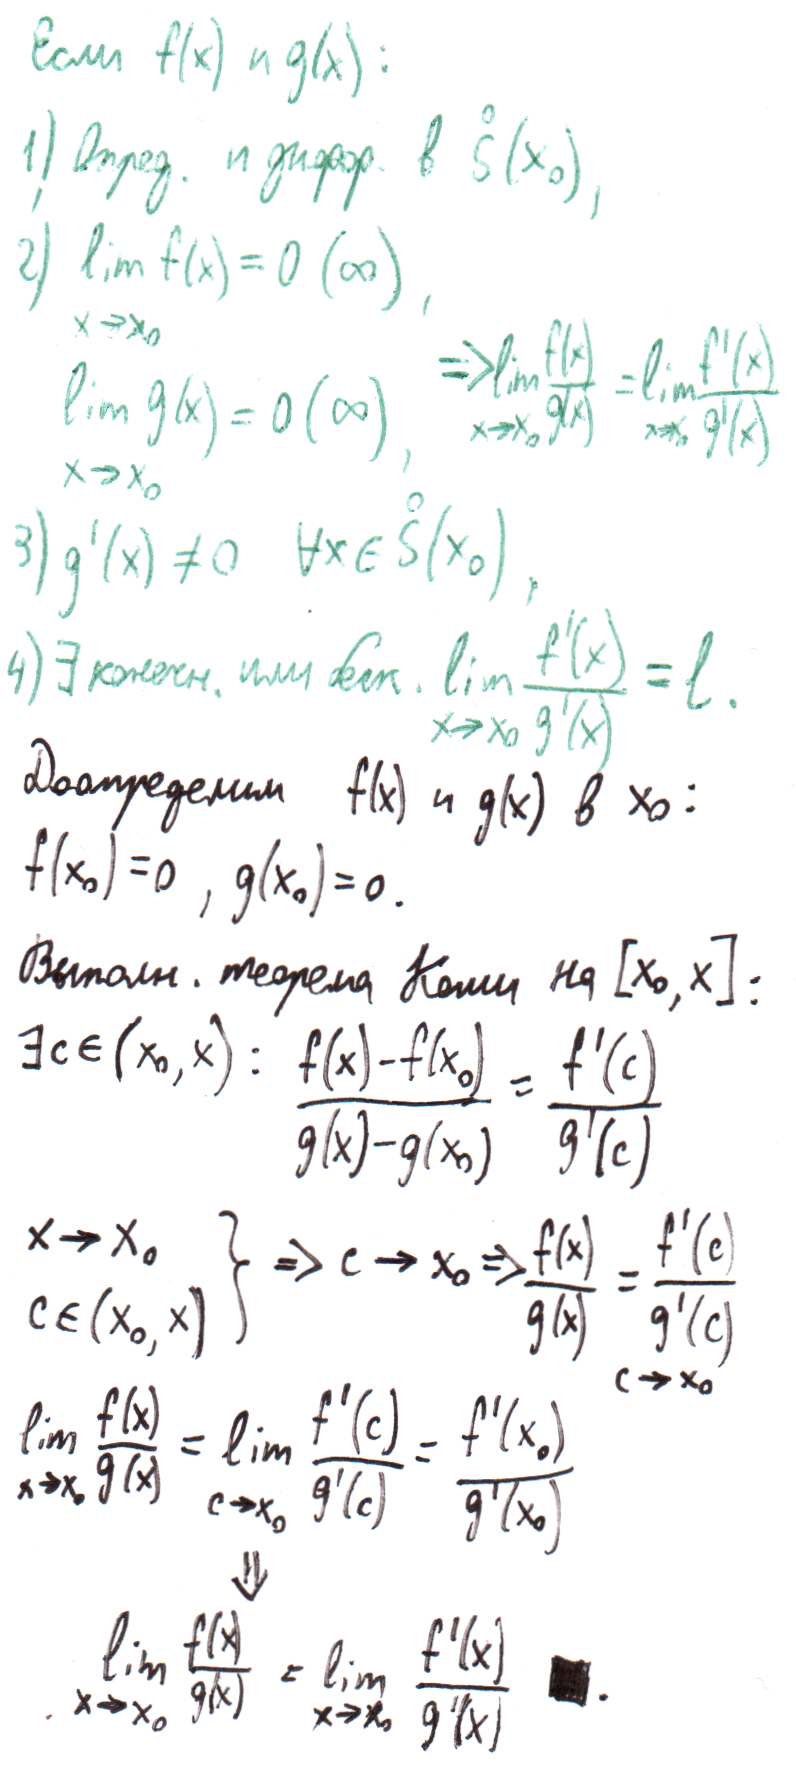 Если f(x) и g(x):
1) Опред. и дифф. в S̊(x₀),
2) lim f(x) = 0 (∞),
x→x₀
lim g(x) = 0 (∞),
x→x₀
⇒ lim f(x)/g(x) = lim f'(x)/g'(x)
x→x₀ x→x₀
3) g'(x) ≠ 0 ∀x∈S̊(x₀),
4) ∃ конечн. или беск. lim f'(x)/g'(x) = l.
x→x₀
Доопределим f(x) и g(x) в x₀:
f(x₀)=0, g(x₀)=0.
Выполн. теорема Коши на [x₀, x]:
∃c∈(x₀, x): (f(x)-f(x₀))/(g(x)-g(x₀)) = f'(c)/g'(c)
x→x₀
c∈(x₀, x)
} ⇒ c → x₀ ⇒ f(x)/g(x) = f'(c)/g'(c)
c→x₀
lim f(x)/g(x) = lim f'(c)/g'(c) = f'(x₀)/g'(x₀)
x→x₀ c→x₀
⇓
lim f(x)/g(x) = lim f'(x)/g'(x) ■.
x→x₀ x→x₀